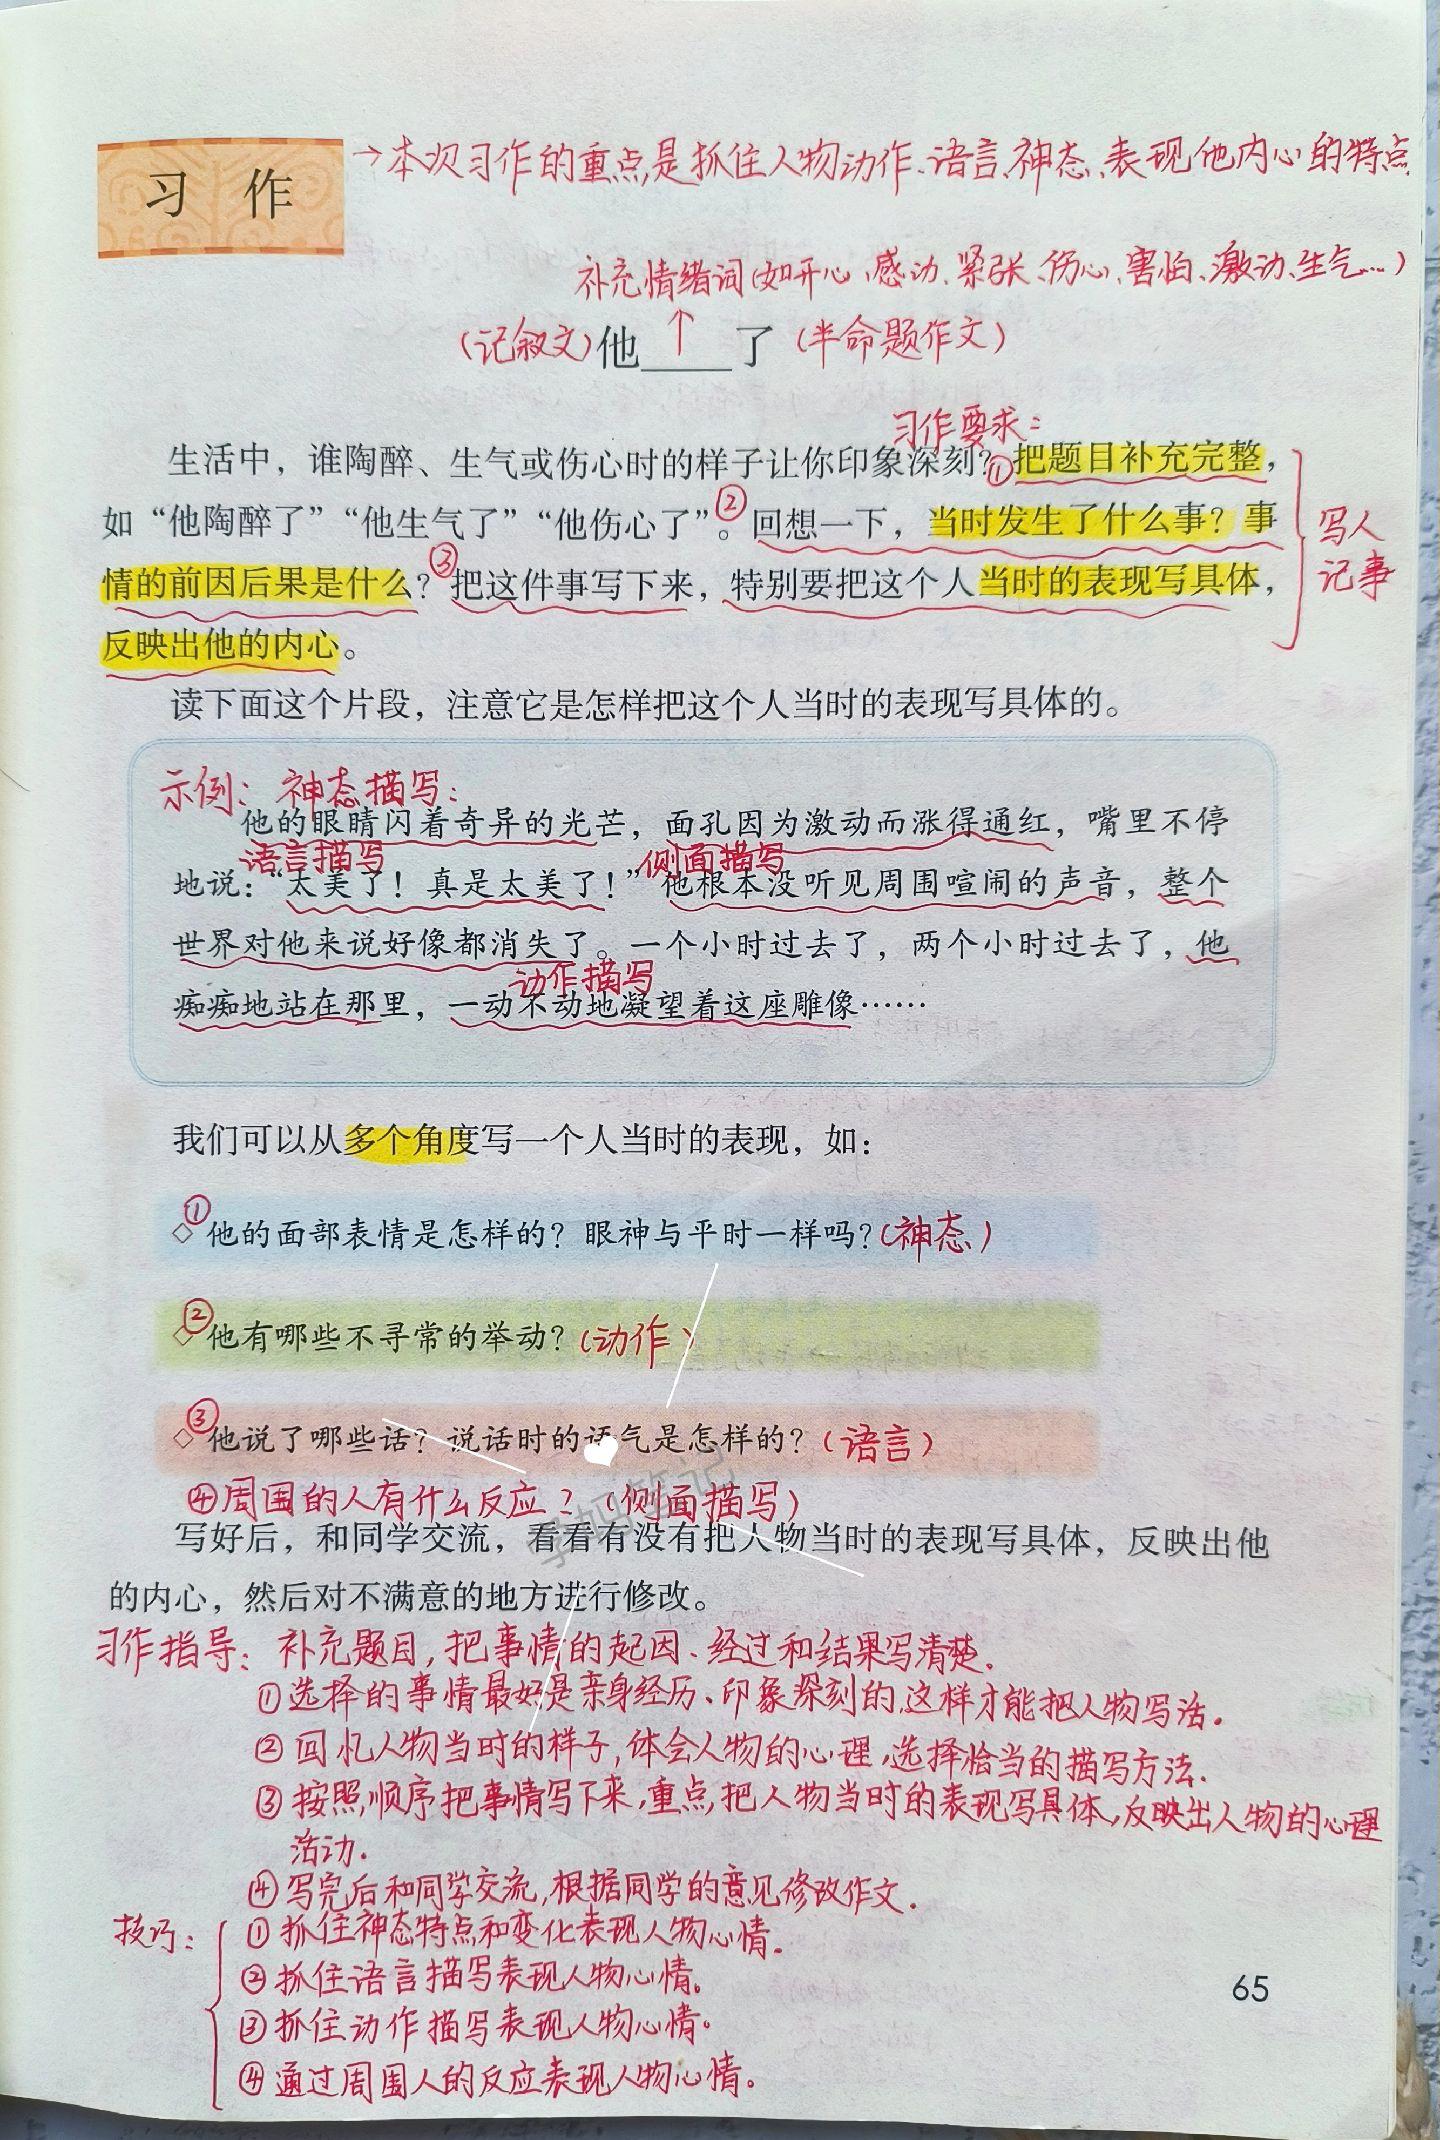 习 作
→本次习作的重点,是抓住人物动作、语言、神态、表现他内心的特点.
补充情绪词(如开心、感动、紧张、伤心、害怕、激动、生气…)
(记叙文)他____了(半命题作文)
习作要求:
生活中，谁陶醉、生气或伤心时的样子让你印象深刻？①把题目补充完整，
如“他陶醉了”“他生气了”“他伤心了”。②回想一下，当时发生了什么事？事
情的前因后果是什么？③把这件事写下来，特别要把这个人当时的表现写具体，
反映出他的内心。
写人
记事
读下面这个片段，注意它是怎样把这个人当时的表现写具体的。
示例: 神态描写:
他的眼睛闪着奇异的光芒，面孔因为激动而涨得通红，嘴里不停
语言描写 侧面描写
地说：“太美了！真是太美了！”他根本没听见周围喧闹的声音，整个
世界对他来说好像都消失了。一个小时过去了，两个小时过去了，他
动作描写
痴痴地站在那里，一动不动地凝望着这座雕像……
我们可以从多个角度写一个人当时的表现，如：
①◇他的面部表情是怎样的？眼神与平时一样吗？(神态)
②◇他有哪些不寻常的举动？(动作)
③◇他说了哪些话？说话时的语气是怎样的？(语言)
④周围的人有什么反应？(侧面描写)
学妈笔记
写好后，和同学交流，看看有没有把人物当时的表现写具体，反映出他
的内心，然后对不满意的地方进行修改。
习作指导: 补充题目,把事情的起因、经过和结果写清楚.
①选择的事情最好是亲身经历、印象深刻的,这样才能把人物写活.
②回忆人物当时的样子,体会人物的心理,选择恰当的描写方法.
③按照顺序把事情写下来,重点,把人物当时的表现写具体,反映出人物的心理
活动.
④写完后和同学交流,根据同学的意见修改作文.
技巧: ①抓住神态特点和变化表现人物心情.
②抓住语言描写表现人物心情。
③抓住动作描写表现人物心情.
④通过周围人的反应表现人物心情。
65